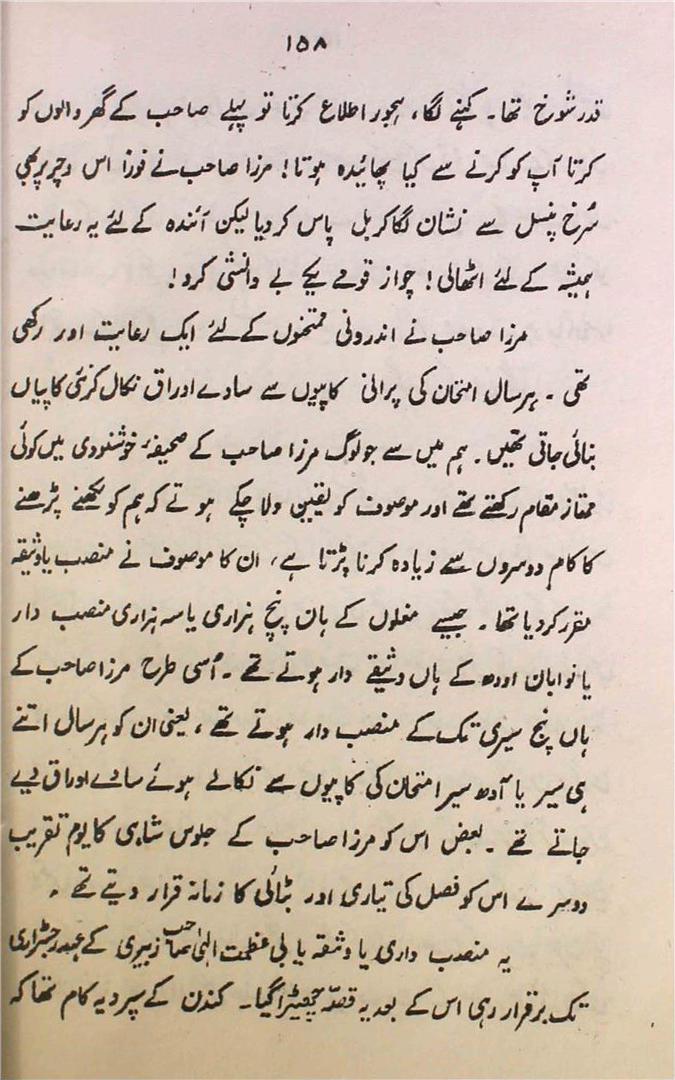 ۱۵۸
قدر شوخ تھا۔ کہنے لگا، ہجور اطلاع کرتا تو پہلے صاحب کے گھر والوں کو
کرتا آپ کو کرنے سے کیا پھائیدہ ہوتا! مرزا صاحب نے فوراً اس وچر پر بھی
سُرخ پنسل سے نشان لگا کر بل پاس کردیا لیکن آئندہ کے لئے یہ رعایت
ہمیشہ کے لئے اٹھالی! چواز قومے یکے بے دانشی کرد!
مرزا صاحب نے اندرونی ممتحنوں کے لئے ایک رعایت اور رکھی
تھی۔ ہر سال امتحان کی پرانی کاپیوں سے سادے اوراق نکال کر نئی کاپیاں
بنائی جاتی تھیں۔ ہم میں سے جو لوگ مرزا صاحب کے صحیفۂ خوشنودی میں کوئی
ممتاز مقام رکھتے تھے اور موصوف کو یقین دلا چکے ہوتے کہ ہم کو لکھنے پڑھنے
کا کام دوسروں سے زیادہ کرنا پڑتا ہے، ان کا موصوف نے منصب یا وثیقہ
مقرر کردیا تھا۔ جیسے مغلوں کے ہاں پنج ہزاری یا سہ ہزاری منصب دار
یا نوابان اودھ کے ہاں وثیقے دار ہوتے تھے۔ اُسی طرح مرزا صاحب کے
ہاں پنج سیری تک کے منصب دار ہوتے تھے، یعنی ان کو ہر سال اتنے
ہی سیر یا آدھ سیر امتحان کی کاپیوں سے نکالے ہوئے سادے اوراق دیے
جاتے تھے۔ بعض اس کو مرزا صاحب کے جلوس شاہی کا یوم تقریب
دوسرے اس کو فصل کی تیاری اور بٹائی کا زمانہ قرار دیتے تھے۔
یہ منصب داری یا وثیقہ یابی عظمت الٰہی صاحب زبیری کے عہد رجسٹراری
تک برقرار رہی اس کے بعد یہ قصّہ چھیڑا گیا۔ کندن کے سپرد یہ کام تھا کہ